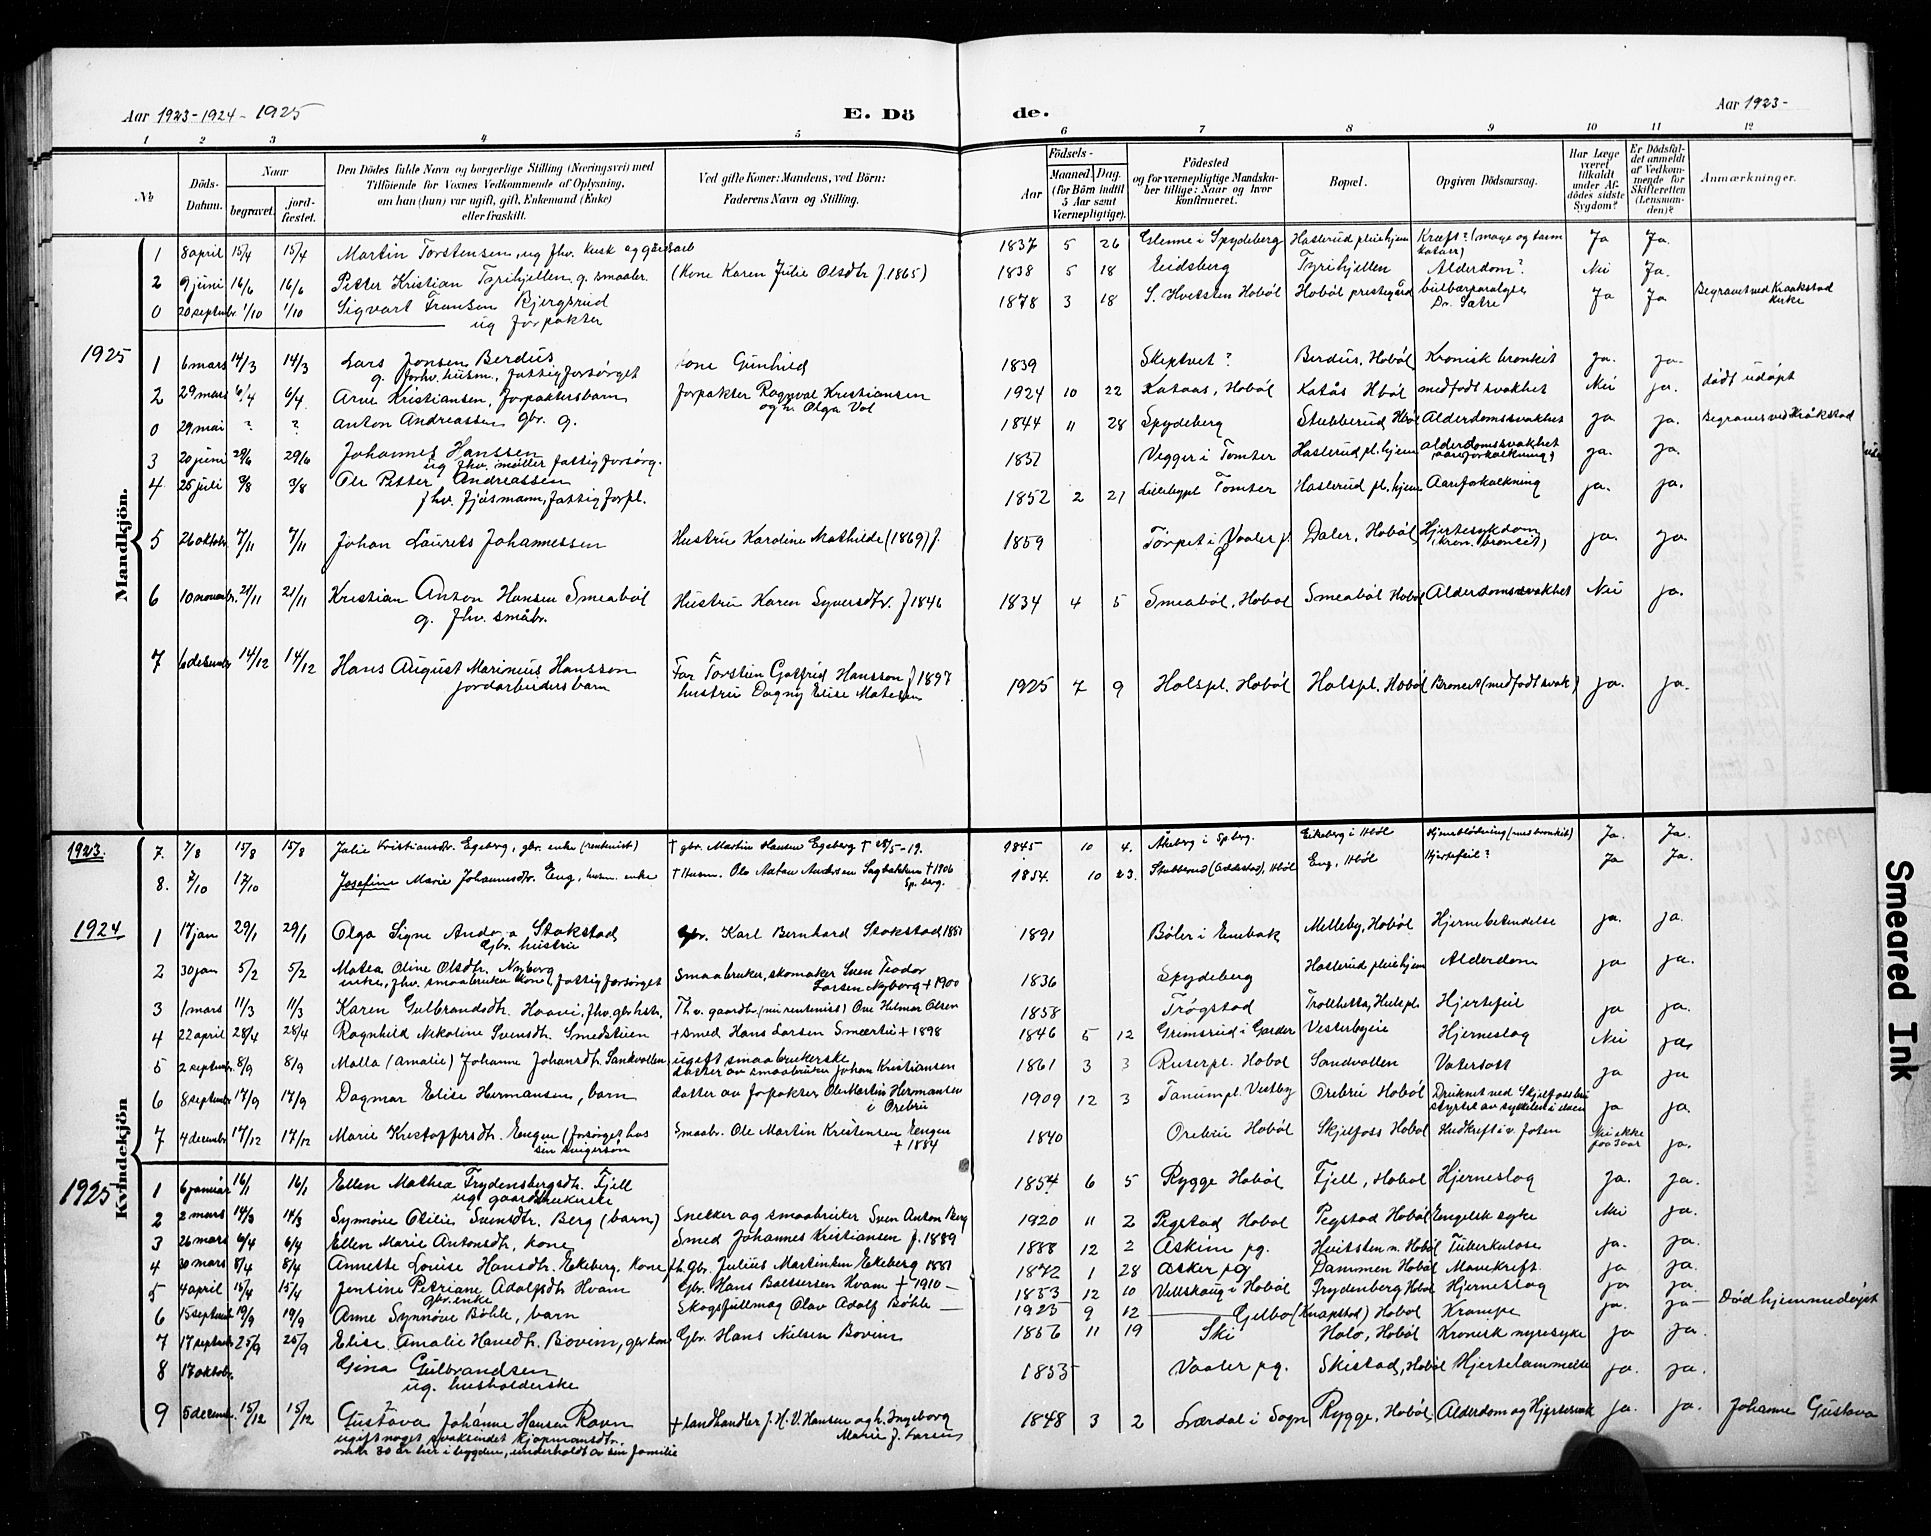 Aar 1923-1924-1925
E. Dö
de.
Aar 1923-
1 2 3 4 5 6 7 8 9 10 11 12
No
Döds-Datum.
Naar
begravet.
jord-fæstet.
Den Dödes fulde Navn og borgerlige Stilling (Næringsvei) med
Tilföiende for Voxnes Vedkommende af Oplysning,
om han (hun) var ugift, gift, Enkemand (Enke)
eller fraskilt.
Ved gifte Koner: Mandens, ved Börn:
Faderens Navn og Stilling.
Födsels-
Aar
Maaned. Dag.
(for Börn indtil
5 Aar samt
Værnepligtige).
Födested
og for værnepligtige Mandska-
ber tillige: Naar og hvor
konfirmeret.
Bopæl.
Opgiven Dödsaarsag.
Har Læge
været
tilkaldt
under Af-
dödes sidste
Sygdom?
Er Dödsfal-
det anmeldt
af Vedkom-
mende for
Skifteretten
(Lensman-
den)?
Anmærkninger.
Mandkjön.
1 8 april 15/4 15/4 Martin Torstensen, ug fhv. kusk og gårdsarb 1837 5 26 Glenne i Spydeberg Hasterud pleiehjem Kræft? (mage og tarm katarr) Ja Ja.
2 9 juni 16/6 16/6 Petter Kristian Tyrihjellen g. smaabr. (Kone Karen Julie Olsdtr f. 1865) 1838 5 18 Eidsberg Tyrihjellen Alderdom? Nei Ja.
0 20 septembr. 1/10 1/10 Sigvart Fransen Bjergsrud
ug forpakter 1878 3 18 S. Hvitsten Hobøl Hobøl prestegård bulbærparalyse
Dr. Sætre Ja Ja Begravet ved Kraakstad
kirke
1925
1 6 mars 14/3 14/3 Lars Jonsen Berdus
g. forhv. husm., fattigforsørget kone Gunhild 1839 Skeptvet? Berdus, Hobøl Kronisk bronkit ja. ja.
2 29 mars 6/4 6/4 Arne Kristiansen, forpaktersbarn forpakter Ragnval Kristiansen
og h. Olga Vol 1924 10 22 Kataas, Hobøl Katås Hbøl medfødt svakhet Nei ja. dødt udøpt
0 29 mai ? ? Anton Andreassen gbr. g. 1844 11 28 Spydeberg Stubberud Hbøl Alderdomssvakhet ja ja. Begraves ved Kråkstad
3 20 juni 29/6 29/6 Johannes Hanssen
ug fhv. møller fattigforsørg. 1837 Vegger i Tomter Hasterud pl. hjem alderdomssvakhet
(aareforkalkning?) ja. ja.
4 25 juli 3/8 3/8 Ole Petter Andreassen
fhv. fjøsmann, fattig forpl. 1852 2 21 Tomter Hasterud pl. hjem Aareforkalkning ja. ja.
5 26 oktobr. 7/11 7/11 Johan Laurits Johannessen Hustru Karoline Mathilde (1869) f. 1859 Tørpet i Vaaler p. Daler, Hobøl Hjertesykdom
(kron. bronkit) ja. ja
6 10 novembr. 21/11 21/11 Kristian Anton Hansen Smeabøl
g. fhv. småbr. Hustru Karen Syversdtr. f 1846 1834 4 5 Smeabøl, Hobøl Smeabøl Hobøl Alderdomssvakhet Nei ja.
7 6 desembr 14/12 14/12 Hans August Marinius Hansson
jordarbeidersbarn Far Torstein Gotfrid Hansson f 1897
hustru Dagny Elise Matisen 1925 7 9 Holspl. Hobøl Holspl. Hobøl Bronkit (medfødt svak) ja. ja.
Kvindekjön
1923.
7. 7/8 15/8 15/8 Julie Kristiansdtr. Egeberg, gbr. enke (rentenist) † gbr. Martin Hansen Egeberg † 28/5-19. 1845 10 4. Åkeberg i Sp.berg. Eikeberg i Hbøl Hjerneblødning (med bronkit) Ja. Ja.
8. 7/10 17/10 Josefine Marie Johannesdtr. Eng, husm. enke † Husm. Ole Anton Andersen Sagbakken † 1906
Sp.berg. 1854. 10 23. Stubberud, Hbøl Eng, Hbøl Hjertefeil? Ja Ja.
1924
1 17 jan 29/1 29/1 Olga Signe Stokstad
Gbr. hustru Gbr. Karl Bernhard Stokstad 1881 1891 Bøler i Enebak Melleby, Hobøl Hjernebetendelse ja. ja.
2 30 jan 5/2 5/2 Matea Oline Olsdtr. Nyborg
enke, fhv. smaabruker kone, fattigforsørget Smaabruker, skomaker Sven Teodor
Larsen Nyborg † 1900 1836 Spydeberg Hasterud pleiehjem Alderdom ja ja.
3 1 mars 11/3 11/3 Karen Gulbrandsdtr. Haavi, fhv. gbr. hstr. Fhv. gaardbr. (nu rentenist) Ole Helmar Olsen 1858 Trøgstad Trollhetta, Hulspl. Hjertefeil ja ja.
4 22 april 28/4 28/4 Ragnhild Nikoline Svensdtr. Smedstuen † smed Hans Larsen Smertu † 1898 1846 5 12 Grimsrud i Garder Vesterbyeie Hjerneslag Nei ja.
5 2 septembr. 8/9 8/9 Malla (Amalie) Johanne Johansdtr. Sandvollen ugift smaabrukerske
datter av smaabruker Johan Kristiansen 1861 3 3 Ruserpl. Hobøl Sandvollen Vatersott ja ja
6 8 septembr 17/9 17/9 Dagmar Elise Hermansen, barn datter av forpakter Ole Martin Hermansen
i Ørebru 1909 12 3 Tanumpl. Vestby Ørebru Hobøl Druknet ved Skjelfossbru
styrtet av sykkelen i elven ja ja.
7 4 decembr 17/12 17/12 Marie Kristoffersdtr. Engen (forsørget hos
sin svigersøn Smaabr. Ole Martin Kristensen Engen
† 1884 1840 Ørebru Hobøl Skjelfoss Hobøl Hudkreft i v. foten Nei ikke
paa 3 aar ja.
1925
1 6 januar 16/1 16/1 Ellen Mathea Frydensbergsdtr. Fjell
ug. gaardbrukerske 1854 6 5 Rygge Hobøl Fjell, Hobøl Hjerneslag ja. ja.
2 2 mars 14/3 14/3 Synnøve Otilie Svensdtr. Berg (barn) Snekker og smaabruker Sven Anton Berg 1920 11 2 Pegstad Hobøl Pegstad Hobøl Engelsk syke Nei ja.
3 26 mars 6/4 6/4 Ellen Marie Antonsdtr, kone Smed Johannes Kristiansen f. 1889 1888 12 2 Askim pg. Hvitsten n. Hobøl Tuberkulose ja. ja.
4 30 mars 8/4 8/4 Annette Louise Hansdtr. Ekeberg, kone fh. gbr. Julius Martinsen Ekeberg 1881 1872 1 28 Asker pg Dammen Hobøl Mavekreft. ja ja.
5 4 april 15/4 15/4 Jensine Petriane Adolfsdtr Hvam
Gbr. enke Gbr. Hans Baltersen Hvam † 1910 — 1853 12 10 Villskaug i Hobøl Frydenberg Hobøl Hjerneslag ja ja.
6 15 septembr 19/9 19/9 Anne Synnøve Bøhle, barn Skogsfullmag Olav Adolf Bøhle — 1925 9 12 Gulbo (Knapstad) Hobøl Krampe ja. ja — Død hjemmedøpt
7 17 septembr 25/9 25/9 Elise Amalie Hansdtr. Bovim, gbr kone Gbr. Hans Nielsen Bovim 1856 11 19 Ski Holo, Hobøl Kronisk nyresyke ja ja.
8 17 oktobr. Gina Gulbrandsen
ug. husholderske 1853 Vaaler pg. Skistad, Hobøl Hjertelammelse ja. ja.
9 5 decembr. 15/12 15/12 Gustava Johanne Hansen Ravn
ugift noget svaksindet kjøpmansdtr.
over 30 år her i bygden, underholdt av sin familie † landhandler J. H. V. Hansen og h. Ingeborg
Marie f. Larsen 1848 3 2 Lærdal i Sogn Rygge, Hobøl Alderdom og Hjertesvak ja. ja. Johanne Gustava
Smeared Ink